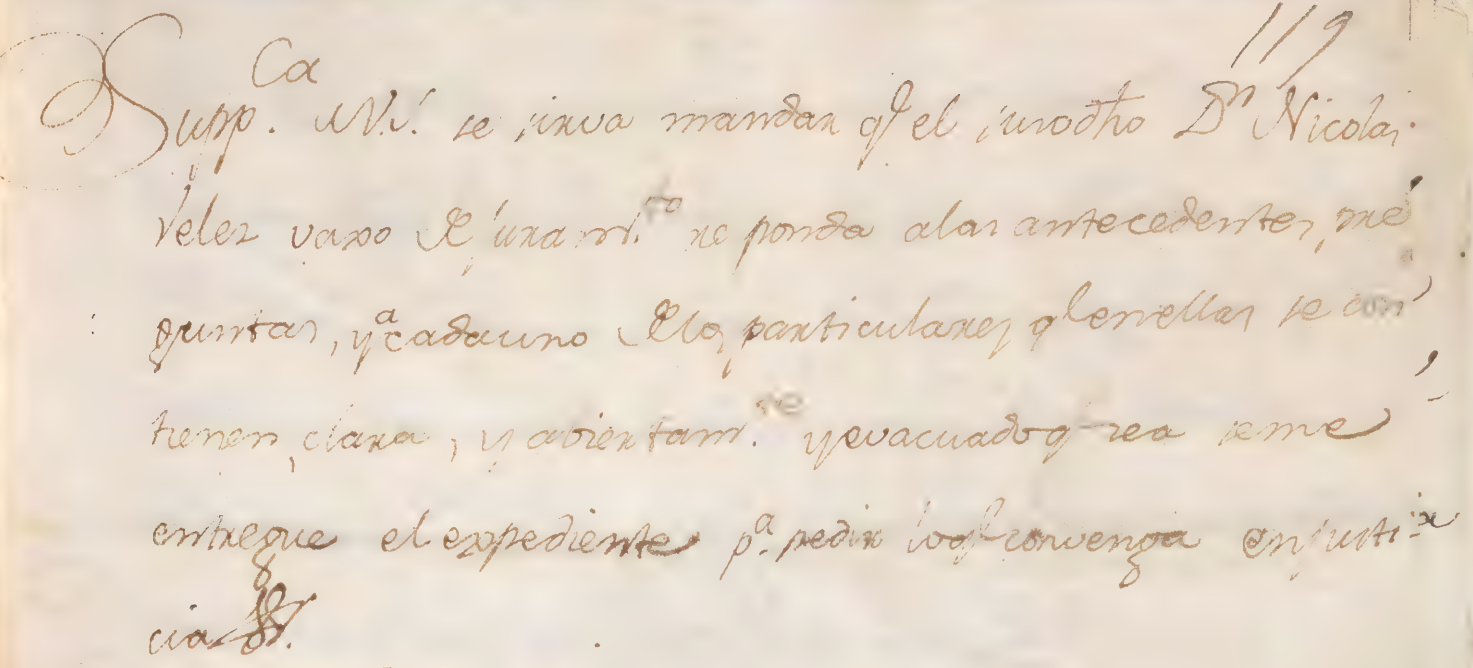 119
Supp.ca a V.S. se sirva mandar q.e el susodho D.n Nicolas
Velez vaxo de juram.to responda alas antecedentes, pre
guntas, y a cada uno delos particulares q.e enellas se con
tienen, clara, y aviertam.te y evacuado q.e sea seme
entregue el expediente p.a pedir loq.e convenga enjusti
cia &.